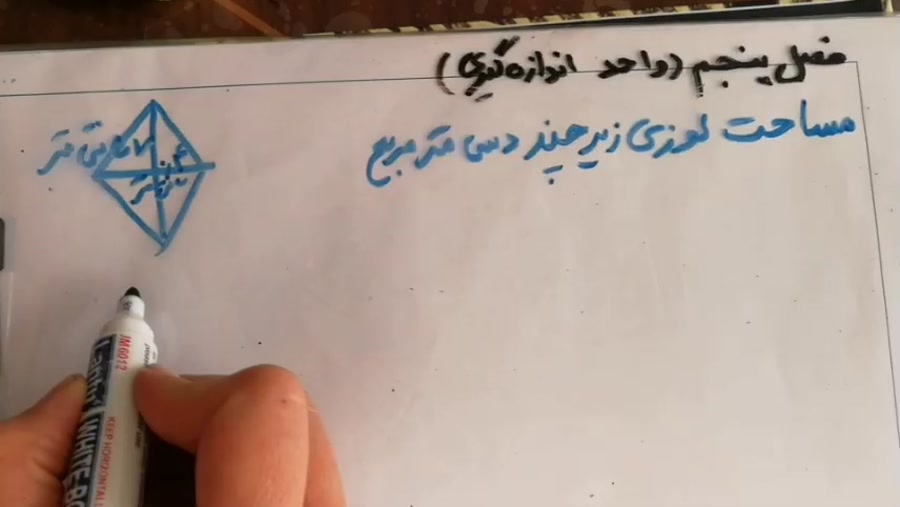 فصل پنجم (واحد اندازه‌گیری)
مساحت لوزی زیر چند دسی متر مربع
سانتی متر
IM6012
WHITE-BO
KEEP HORIZONTAL